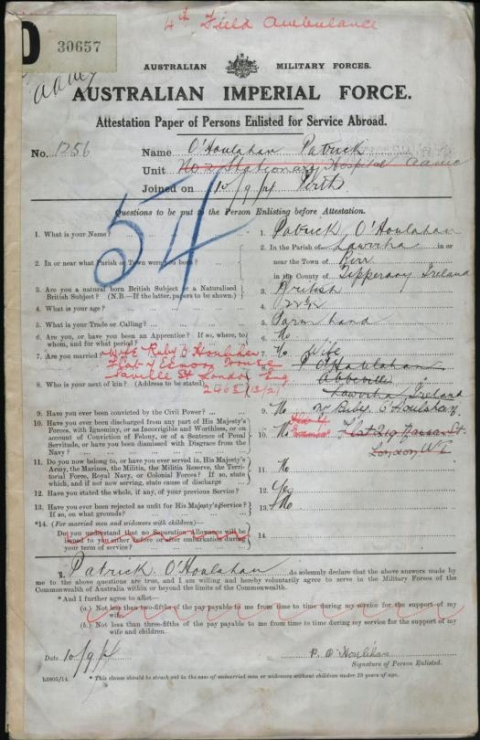 4th Field Ambulance
D
30657
AUSTRALIAN MILITARY FORCES.
AUSTRALIAN IMPERIAL FORCE.
Attestation Paper of Persons Enlisted for Service Abroad.
No. 1256 Name O'Houlahan Patrick
Unit No 2 Stationary Hospital AAMC
Joined on 10/9/14 Perth
54
Questions to be put to the Person Enlisting before Attestation.
1. What is your Name? 1. Patrick O'Houlahan
2. In or near what Parish or Town were you born? 2. In the Parish of Lorrha in or
near the Town of Birr
in the County of Tipperary Ireland
3. Are you a natural born British Subject or a Naturalised
British Subject? (N.B.—If the latter, papers to be shown.) 3. British
4. What is your age? 4.
5. What is your Trade or Calling? 5. Farm hand
6. Are you, or have you been an Apprentice? If so, where, to
whom, and for what period? 6. No
7. Are you married? 7. No Wife
8. Who is your next of kin? (Address to be stated) 8. P O'Houlahan
Abbeville
Lorrha Ireland
9. Have you ever been convicted by the Civil Power? 9. No
10. Have you ever been discharged from any part of His Majesty's
Forces, with Ignominy, or as Incorrigible and Worthless, or on
account of Conviction of Felony, or of a Sentence of Penal
Servitude, or have you been dismissed with Disgrace from the
Navy? 10. No
London W1
11. Do you now belong to, or have you ever served in, His Majesty's
Army, the Marines, the Militia, the Militia Reserve, the Terri-
torial Force, Royal Navy, or Colonial Forces? If so, state
which, and if not now serving, state cause of discharge 11. No
12. Have you stated the whole, if any, of your previous Service? 12. Yes
13. Have you ever been rejected as unfit for His Majesty's Service?
If so, on what grounds? 13. No
*14. (For married men and widowers with children)—
Do you understand that no Separation Allowance will be
issued to you either before or after embarkation during
your term of service? 14.
I, Patrick O'Houlahan do solemnly declare that the above answers made by
me to the above questions are true, and I am willing and hereby voluntarily agree to serve in the Military Forces of the
Commonwealth of Australia within or beyond the limits of the Commonwealth.
*And I further agree to allot—
(a.) Not less than two-fifths of the pay payable to me from time to time during my service for the support of my
wife.
(b.) Not less than three-fifths of the pay payable to me from time to time during my service for the support of my
wife and children.
Date 10/9/14 P. O'Houlihan
Signature of Person Enlisted.
* This clause should be struck out in the case of unmarried men or widowers without children under 18 years of age.